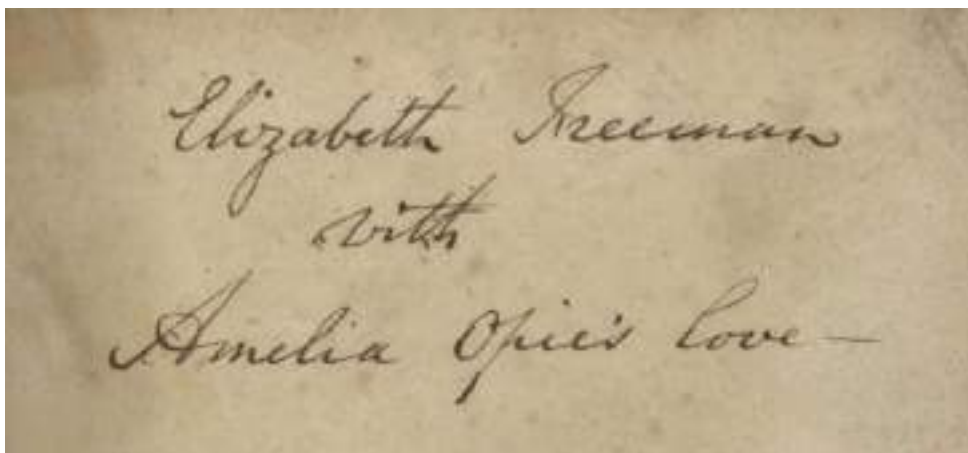 Elizabeth Freeman
with
Amelia Opie's love —